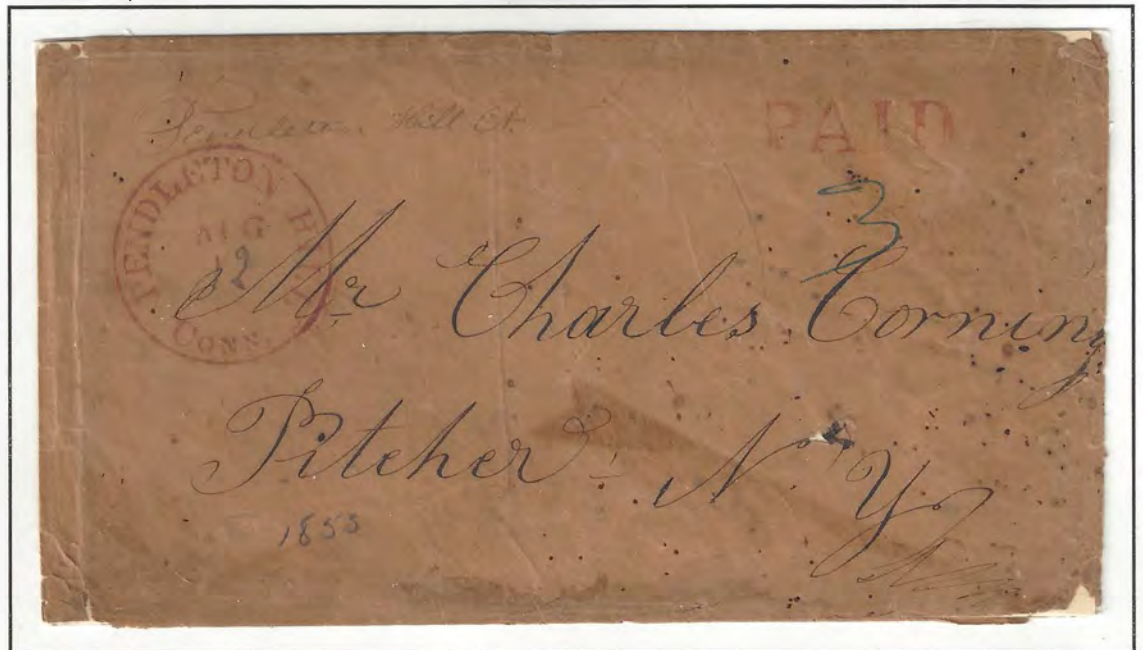 Pendleton Hill Ct.
PAID
PENDLETON HILL
AUG
12
CONN.
3
Mr Charles Corning
Pitcher N. Y.
1855